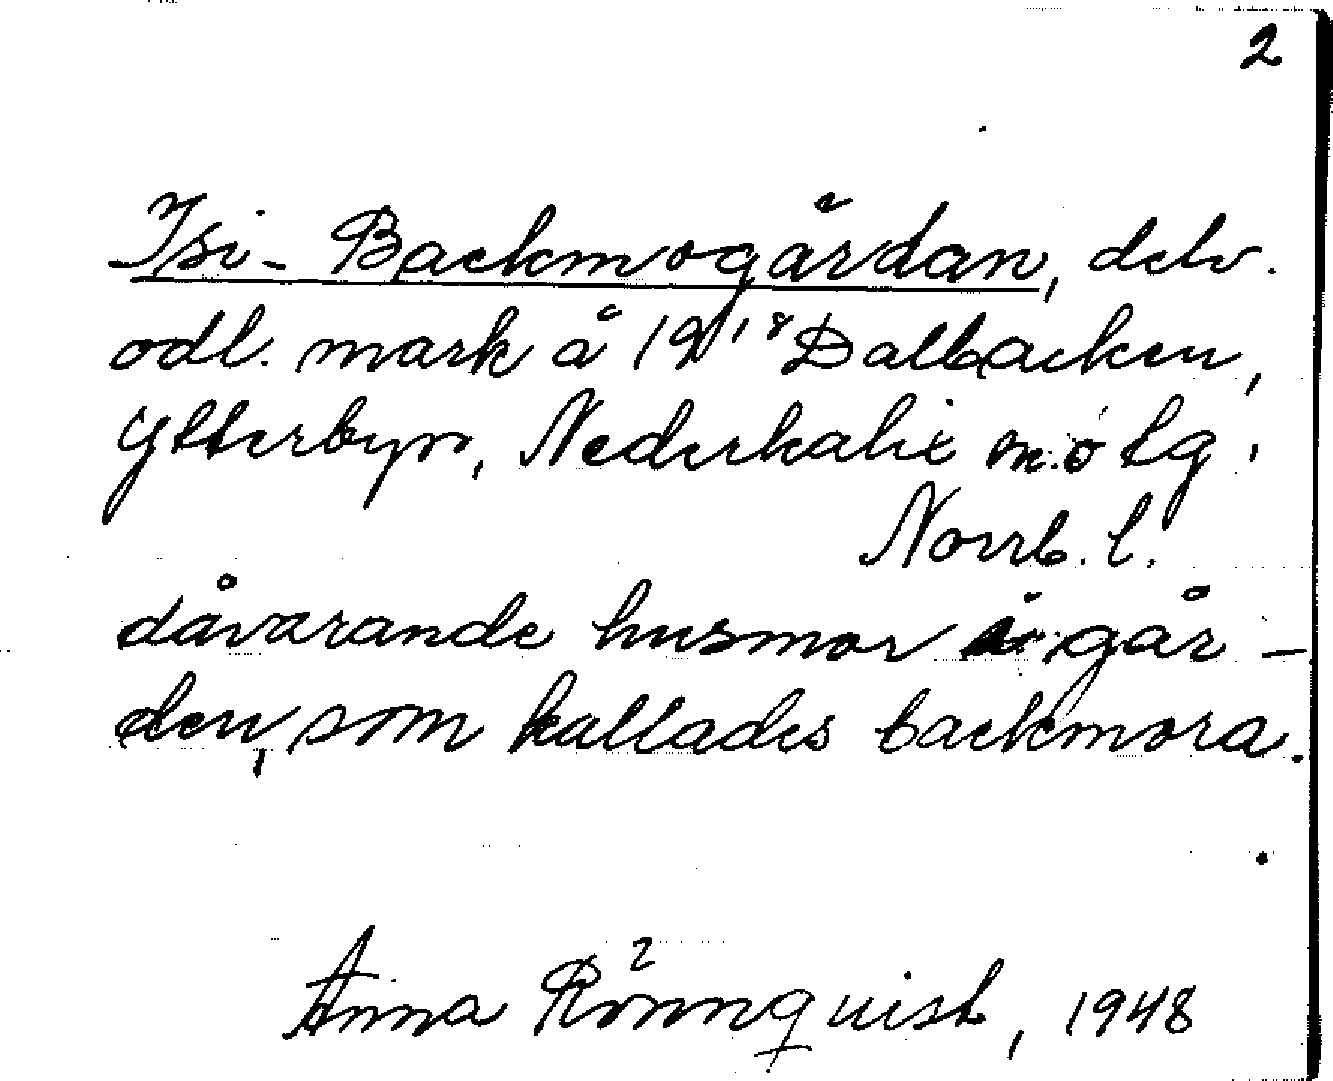 2
Isi-Backmogårdan, delv.
odl. mark å 19¹¹⁸ Dalbacken,
Ytterbyn, Nederkalix sn o tg.
Norrb. l.
dåvarande husmor å går-
den, som kallades backmora.
Anna Rönnquist, 1948